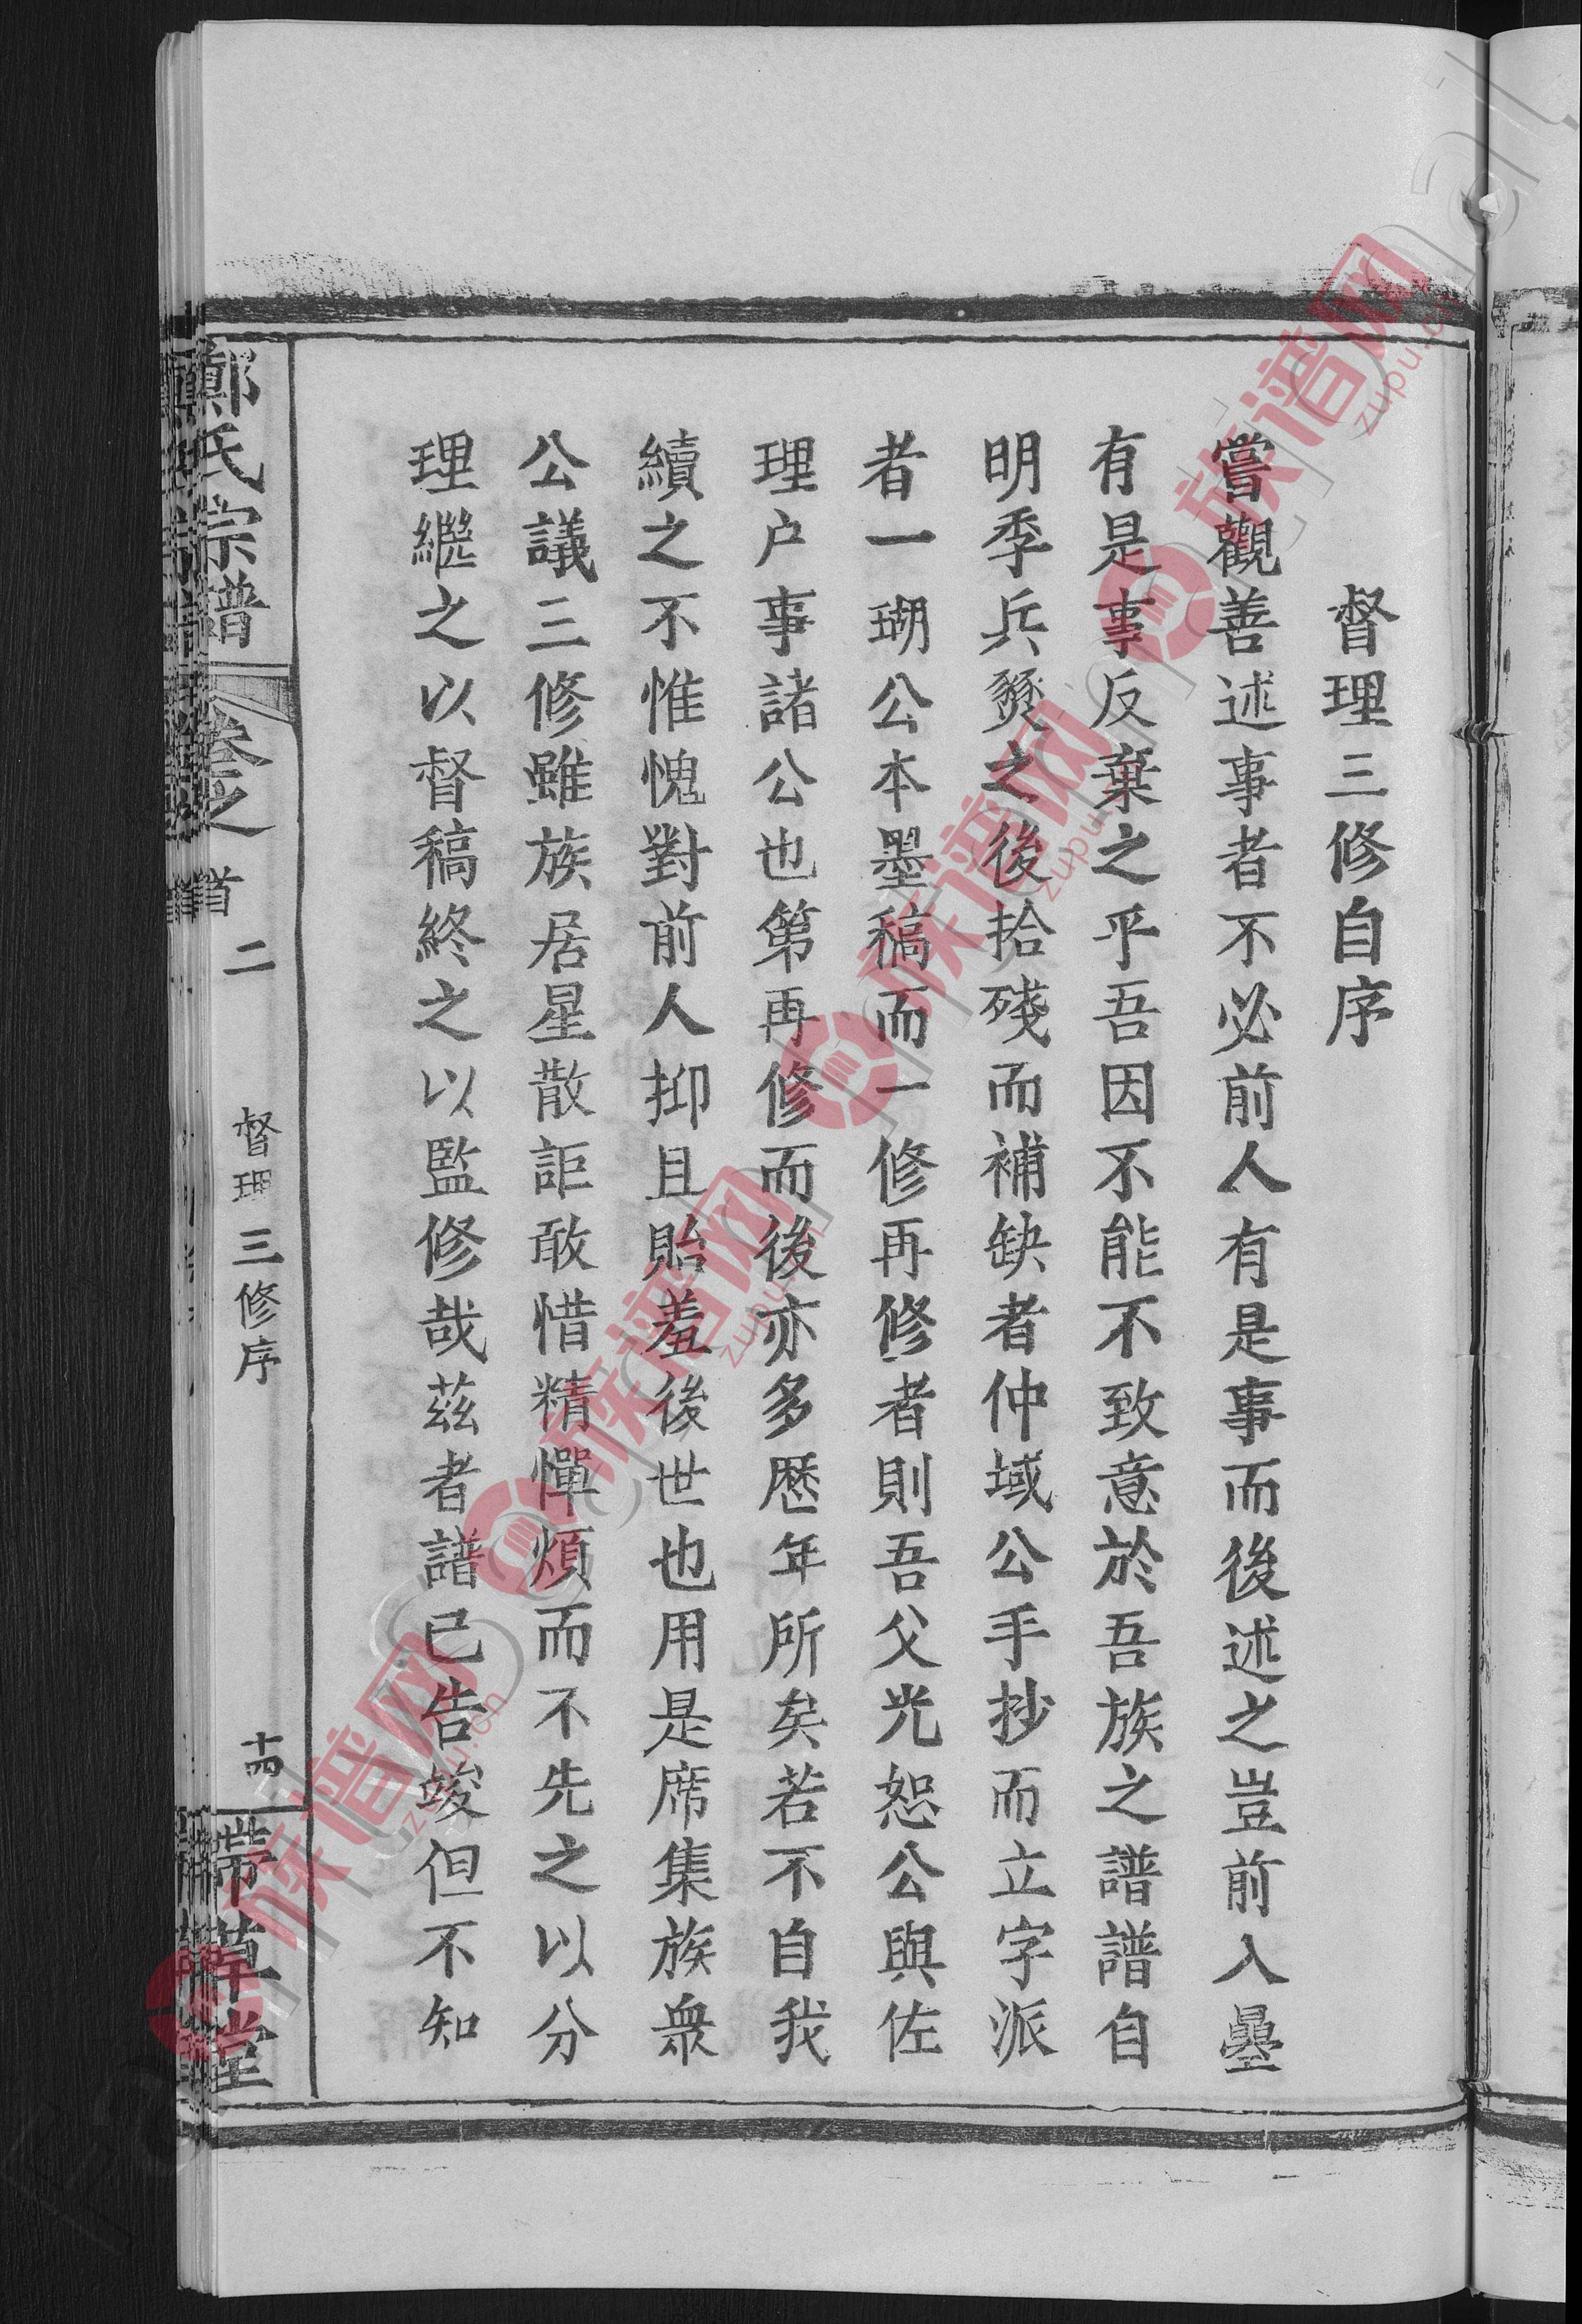 督理三修自序
嘗觀善述事者不必前人有是事而後述之豈前人疊
有是事反棄之乎吾因不能不致意於吾族之譜譜自
明季兵燹之後拾殘而補缺者仲域公手抄而立字派
者一瑚公本墨稿而一修再修者則吾父光恕公與佐
理户事諸公也第再修而後亦多歷年所矣若不自我
續之不惟愧對前人抑且貽羞後世也用是席集族衆
公議三修雖族居星散詎敢惜精憚煩而不先之以分
理繼之以督稿終之以監修哉茲者譜已告竣但不知
鄭氏宗譜
卷之首二
督理三修序
十四
帶草堂
族谱网
zupu.cn
族谱网
zupu.cn
族谱网
zupu.cn
族谱网
zupu.cn